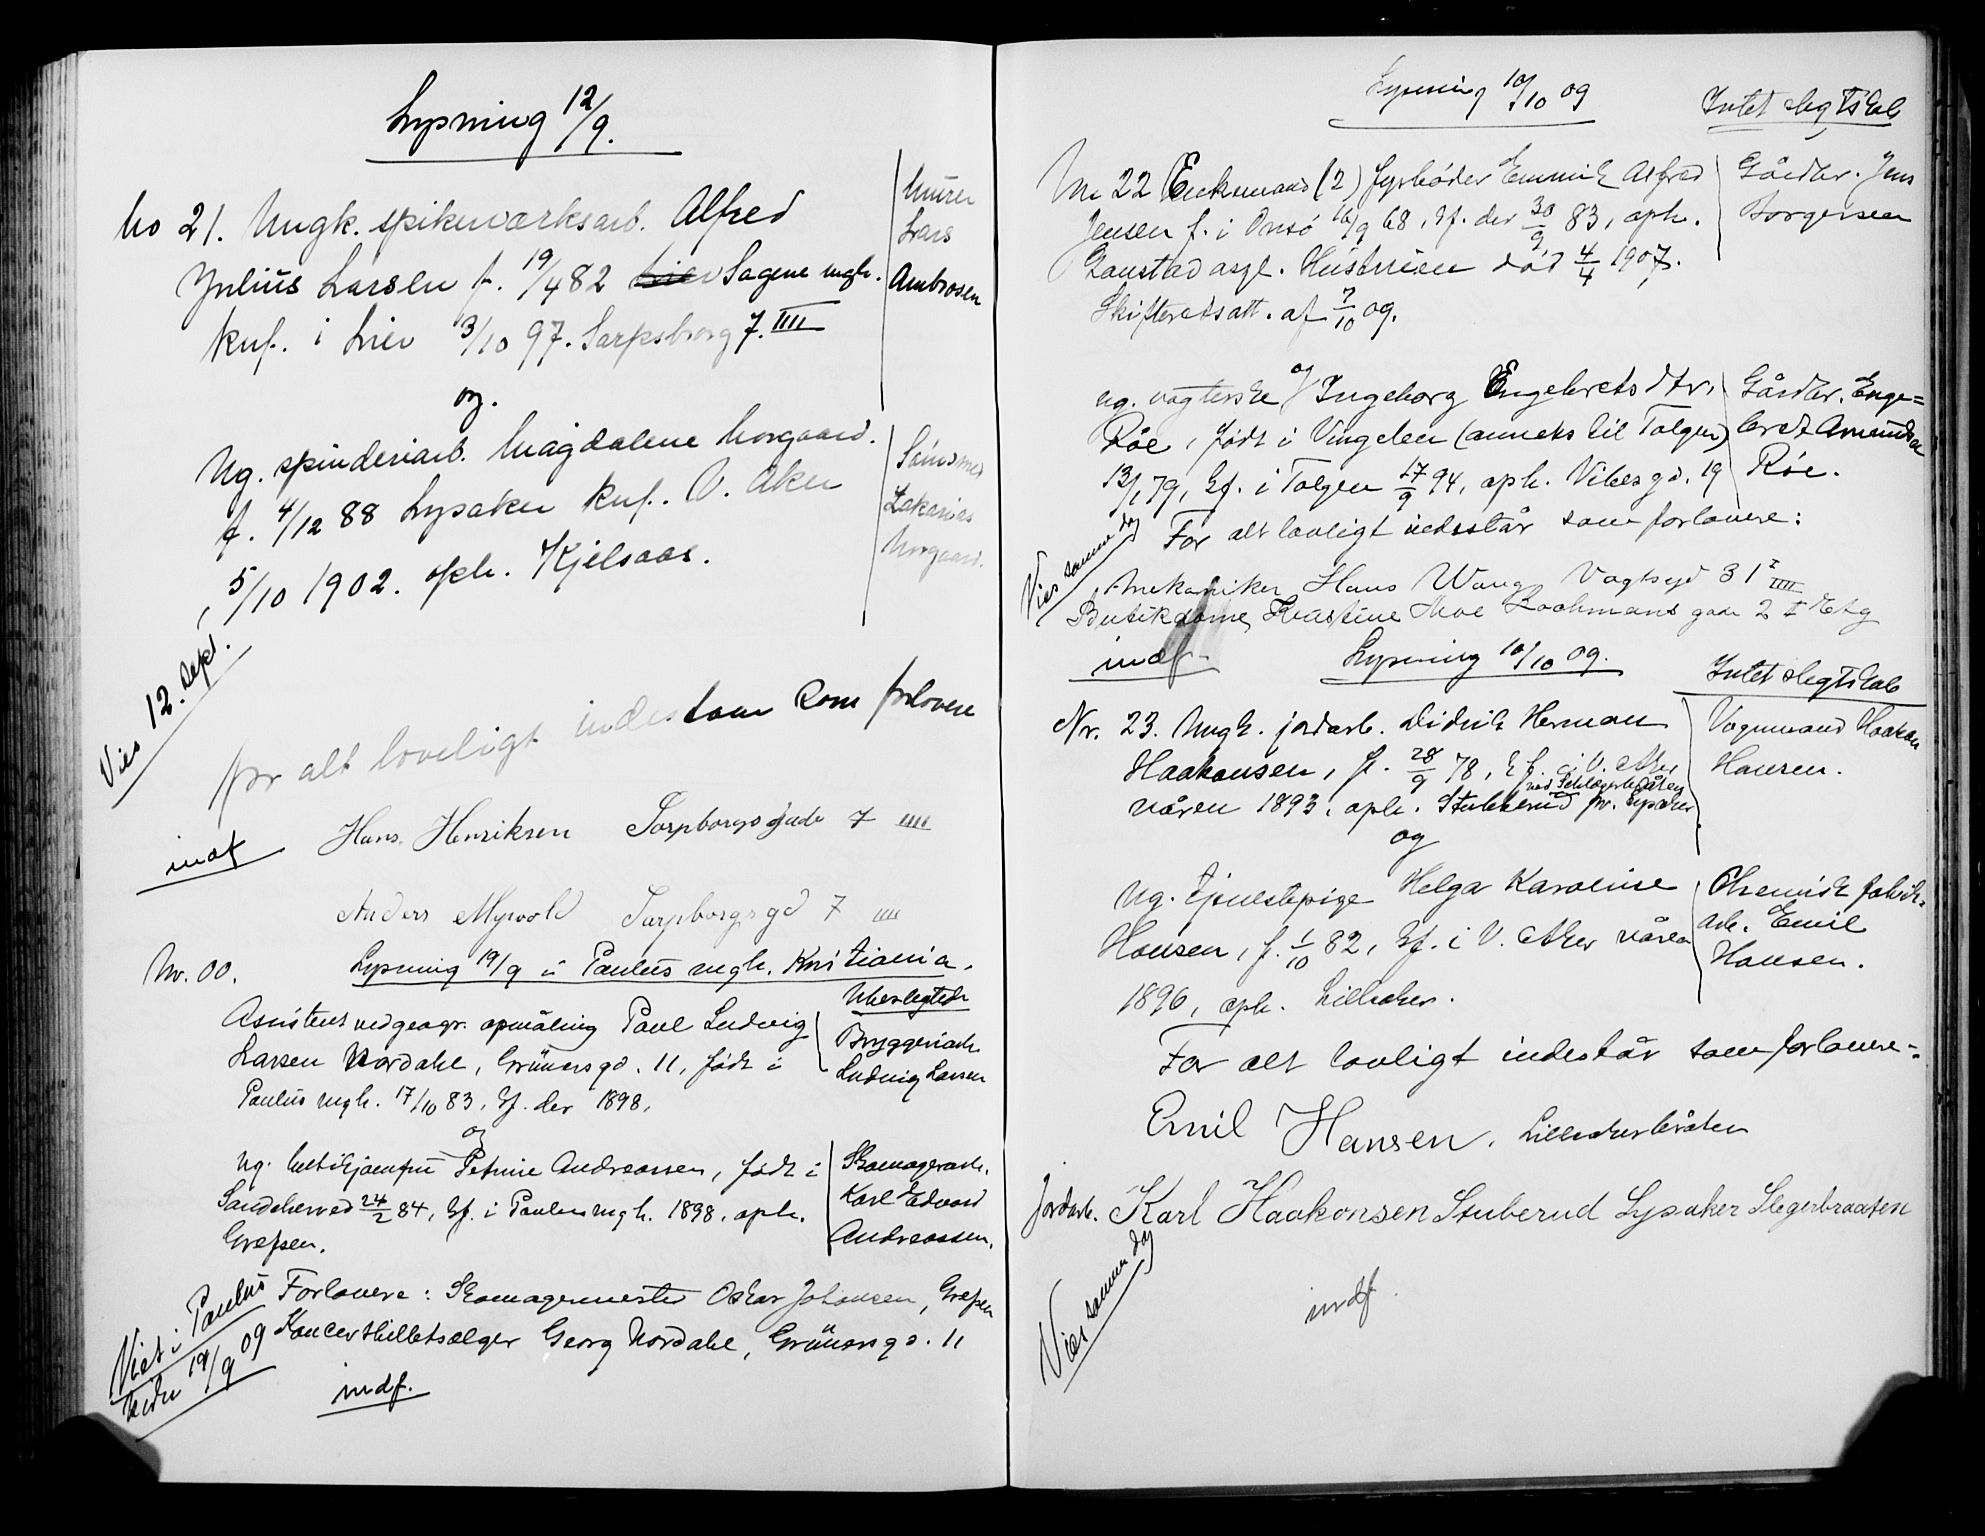 Lysning 12/9.
No 21. Ungk. spikerværksarb. Alfred
Julius Larsen f. 19/4 82 Lier Sagene mgh.
knf. i Lier 3/10 97. Sarpsborg 7. IIII
Murer
Lars
Ambrosen
og.
Ug. spinderiarb. Magdalene Norgaard.
f. 4/12 88 Lysaker knf. V. Aker
5/10 1902. oph. Kjelsaas.
Zakarias
Norgaard.
Viet 12. sept.
for alt loveligt indestaar som forlovere
Hans Henriksen Sarpborgsgade 7 IIII
indf
Anders Myrvold Sarpborgsgd 7 IIII
Nr. 00. Lysning 19/9 i Paulus mgh. Kristiania.
Ubeslegtede
Assistent ved geogr. opmåling Paul Ludvig
Larsen Nordahl, Grünersgd. 11, født i
Paulus mgh. 17/10 83, kf. der 1898.
Bryggeriarb.
Ludvig Larsen
og
Ug. butikjomfru Petrine Andreassen, født i
Sandeherred 24/2 84, kf. i Paulus mgh. 1898, oph.
Grefsen.
Skomagerarb.
Karl Edvard
Andreassen.
Forlovere: Skomagermester Oskar Johansen, Grefsen
Koncertbilletsælger Georg Nordahl, Grünersgd. 11
Viet i Paulus
kirke 19/9 09
indf.
Lysning 10/10 09 Intet slegtskab
Nr 22 Enkemand (2) fyrbøder Emmik Alfred
Jensen f. i Onsø 16/9 68, kf. der 30/9 83, oph.
Gaustad asyl. Hustruen død 4/4 1907.
Skifteretsatt. af 7/10 09.
Gårdbr. Jens
Borgersen
og
ug. vogterske Ingeborg Engebretsdtr.
Röe, født i Vingelen (anneks til Tolgen)
13/1 79, kf. i Tolgen 17/9 94, oph. Vibesgd. 19
Gårdbr. Enge=
bret Amundsen
Röe.
Viet samme dag
For alt lovligt indestår som forlovere:
Mekaniker Hans Wang Vogtsgd 31 IIII
Butikdame Kristine Moe Rathmans gade 2 I Etg
indf.
Lysning 10/10 09. Intet slegtskab
Nr. 23. Ungk. jordarb. Didrik Herman
Haakonsen, f. 28/9 78, kf. i V. Aker
våren 1893, oph. Stubberud pr. Lysaker
Vognmand Haakon
Hansen.
og
Ug. tjenestepige Helga Karoline
Hansen, f. 1/10 82, kf. i V. Aker våren
1896, oph. Lilleaker.
Chemisk fabrik-
arb. Emil
Hansen.
For alt lovligt indestår som forlovere:
Emil Hansen. Lilleakerbråten
Jordarb. Karl Haakonsen Stuberud Lysaker Slegerbraaten
Viet samme dag
indf.